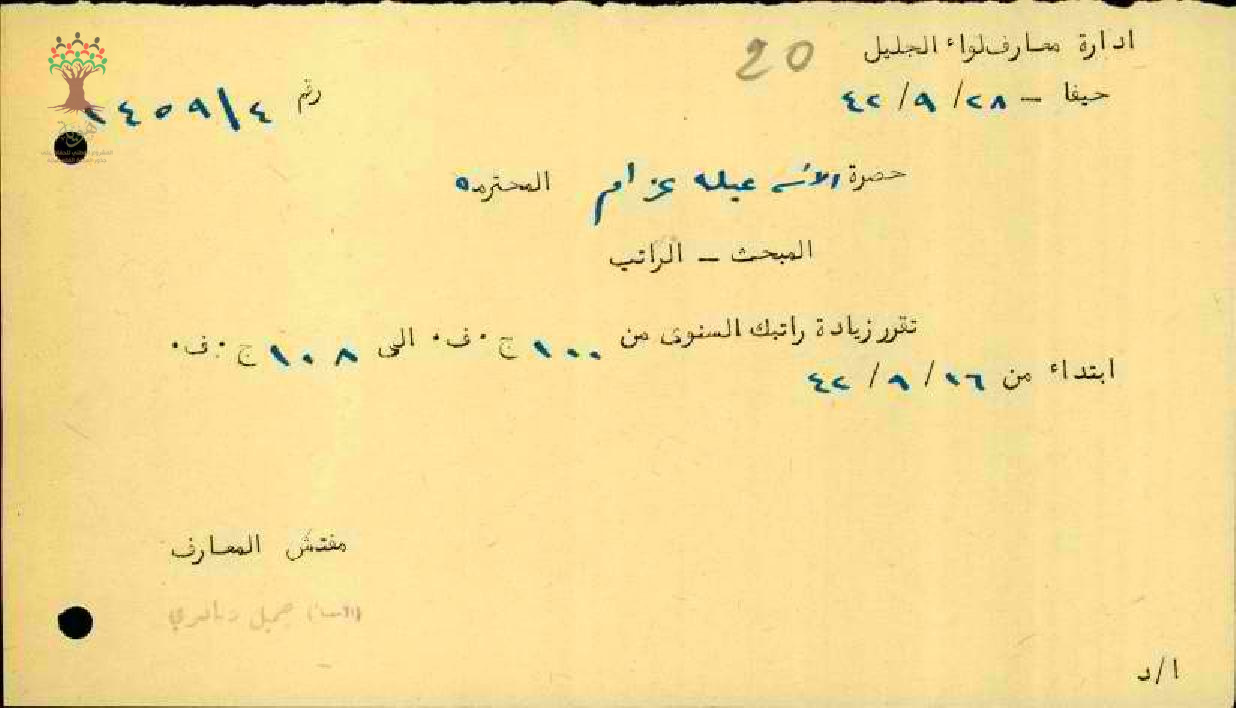 ادارة معارف لواء الجليل
20
حيفا — ٢٨/ ٩/ ٤٢
رقم ٤/١٤٥٩
حضرة الآنسه عبله عزام المحترمه
المبحث — الراتب
تقرر زيادة راتبك السنوى من ١٠٠ ج ٠ ف ٠ الى ١٠٨ ج ٠ ف ٠
ابتداء من ١٦/ ٩/ ٤٢
مفتش المعارف
جميل
ا/د